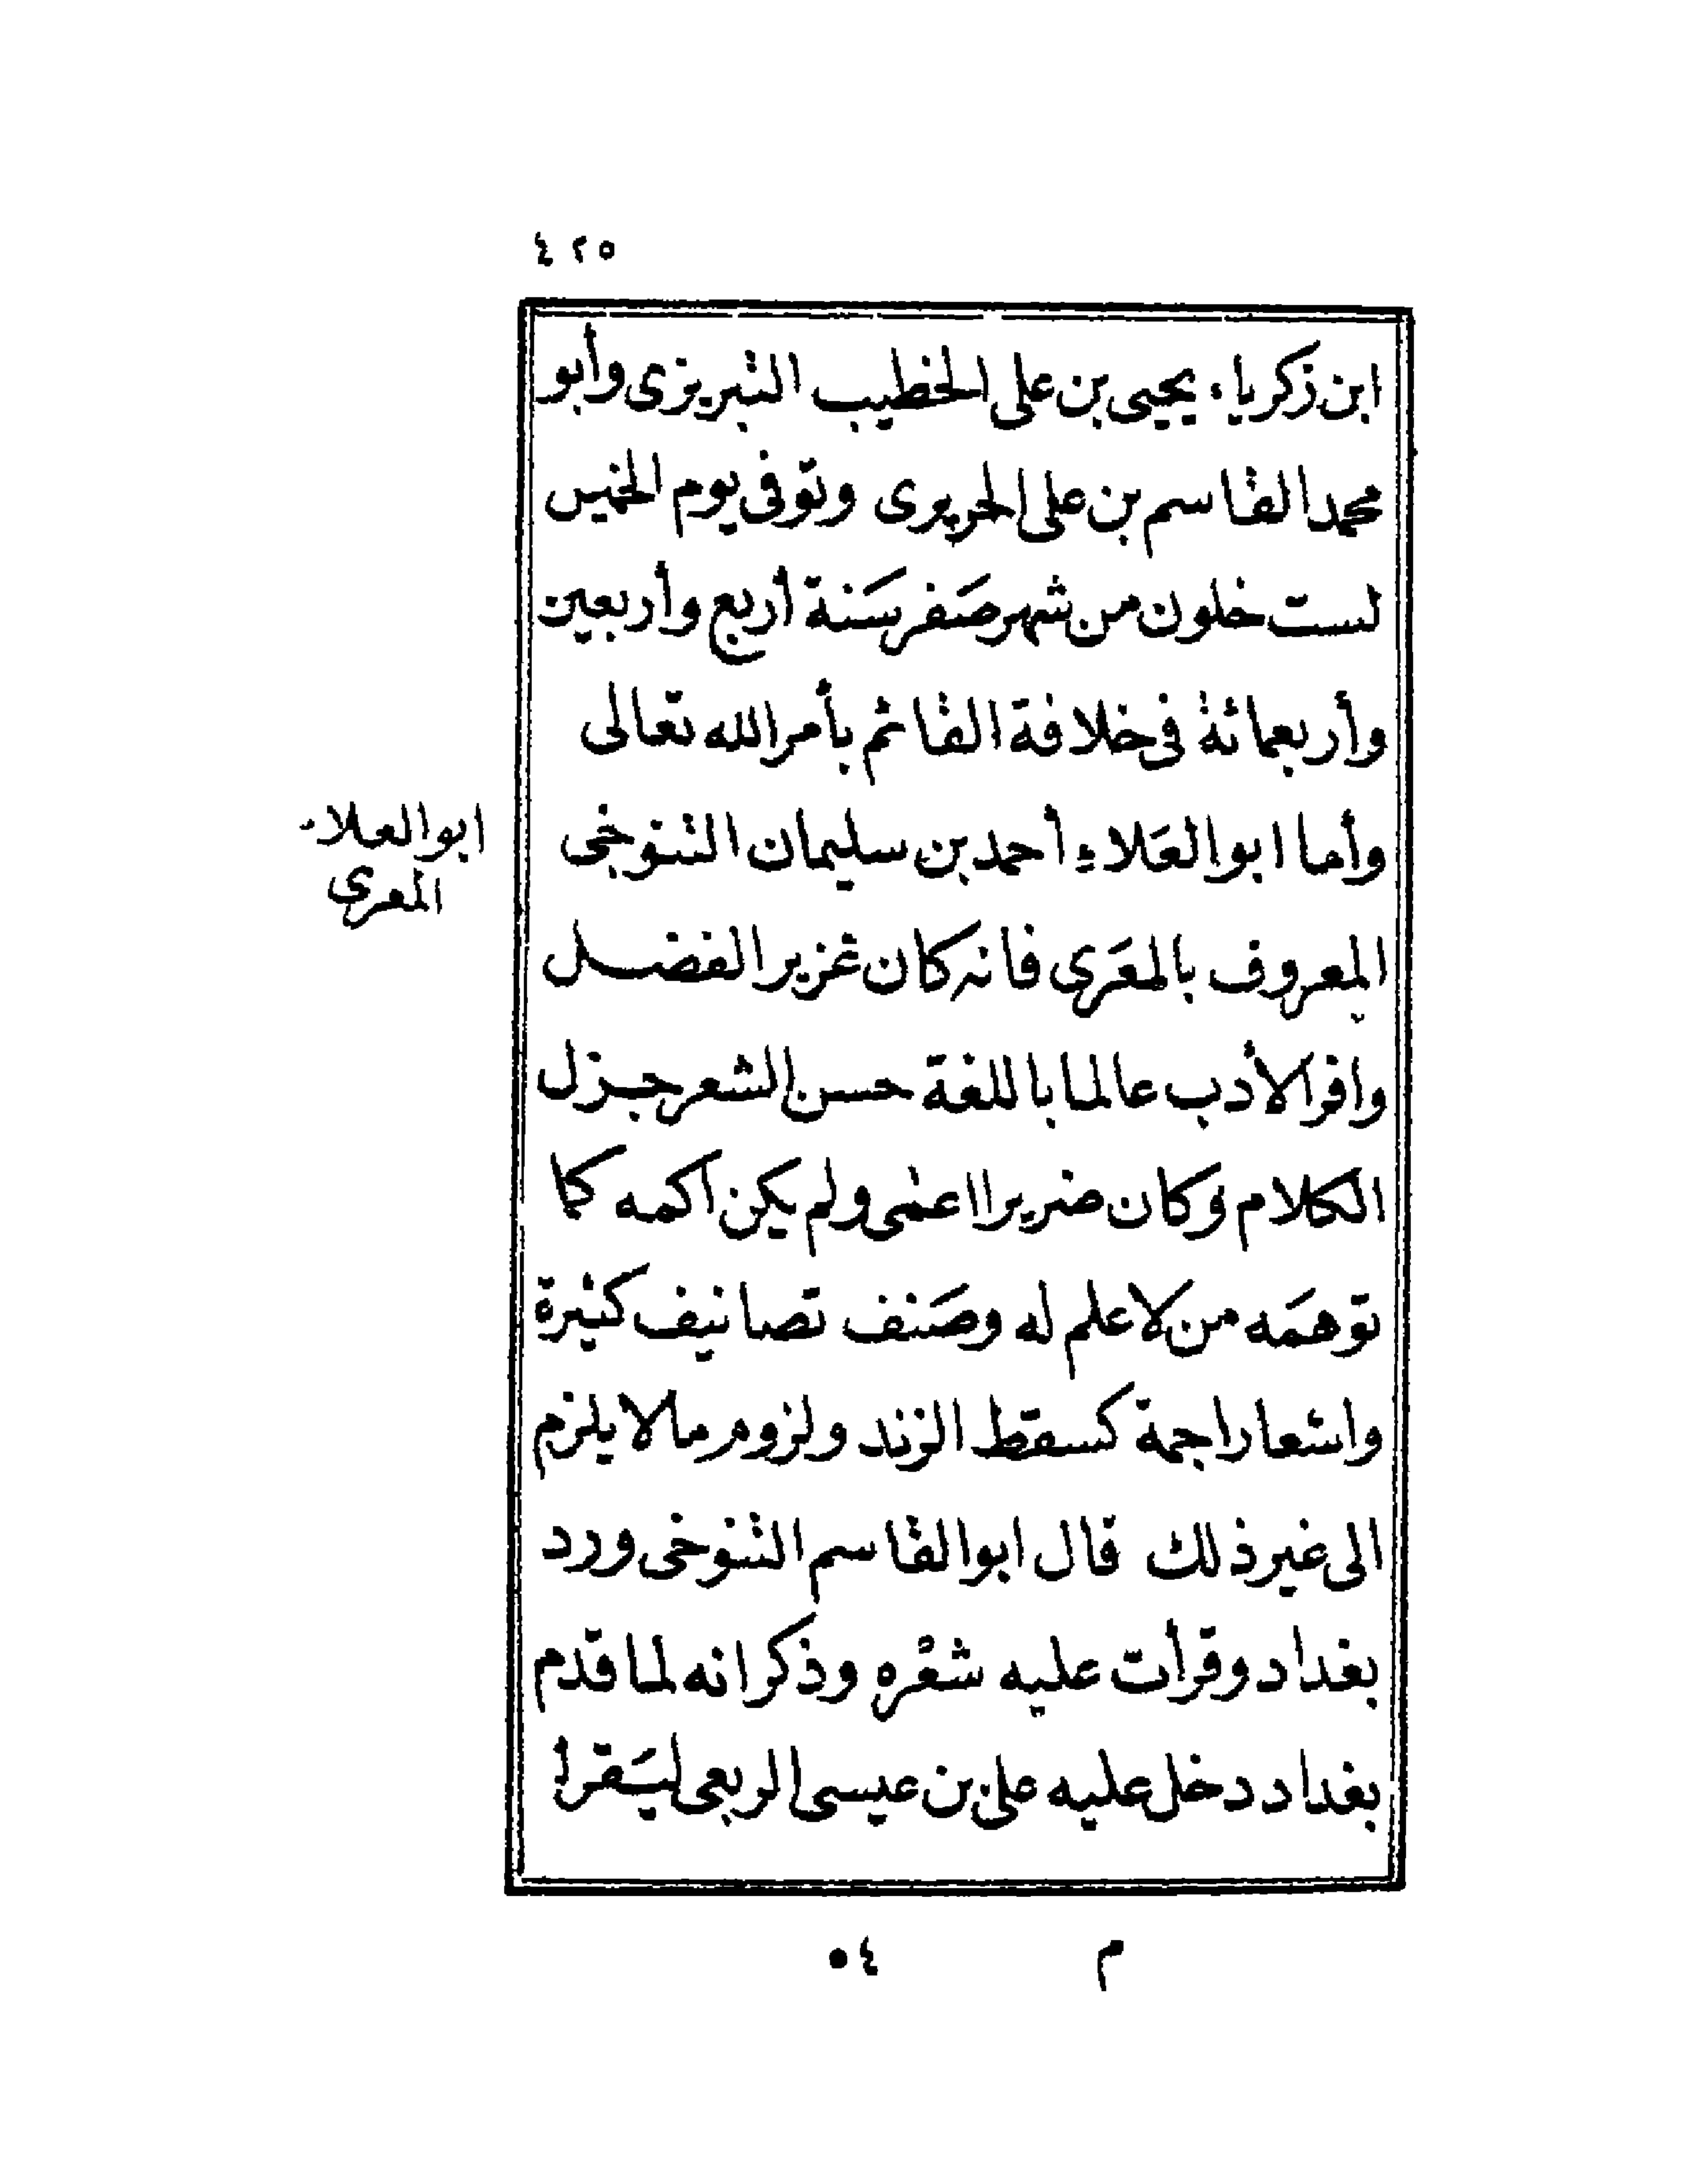 ٤٢٥
ابن زكرياء يحيى بن على الخطيب التبريزى وأبو
محمد القاسم بن على الحريرى وتوفى يوم الخميس
لست خلون من شهر صَفر سَنة أربع وأربعين
وأربعمائة فى خلافة القائم بأمر الله تعالى
وأما ابو العَلاءِ أحمد بن سليمان التنوخى
ابو العلاء
المعرى
المعروف بالمعَرى فانه كان غزير الفضل
وافر الأدب عالما باللغة حسن الشعر جزل
الكلام وكان ضريرا اعمى ولم يكن اكمه كما
توهمَه من لا علم له وصَنف تصانيف كثيرة
واشعارا جمة كسقط الزند ولزوم مالا يلزم
الى غير ذلك قال ابو القاسم التنوخى ورد
بغداد وقرأت عليه شعْره وذكر انه لما قدم
بغداد دخل عليه على بن عيسى الربعى ليَقرأ
م ٥٤